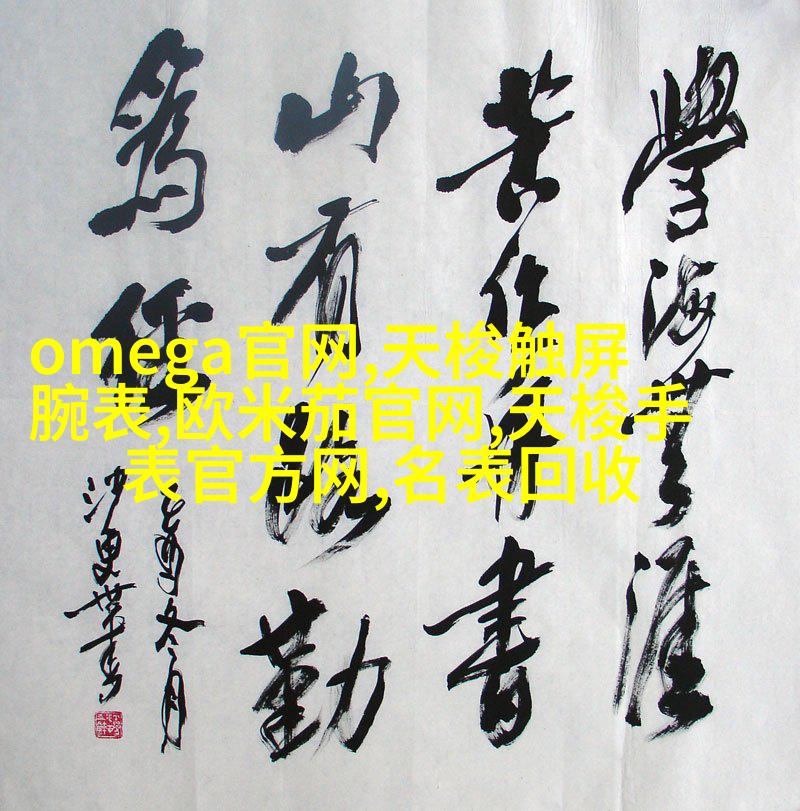 omega官网,天梭触屏
腕表,欧米茄官网,天梭手
表官方网,名表回收
學海無涯
苦作舟書
山有路勤
為徑
酉冬月